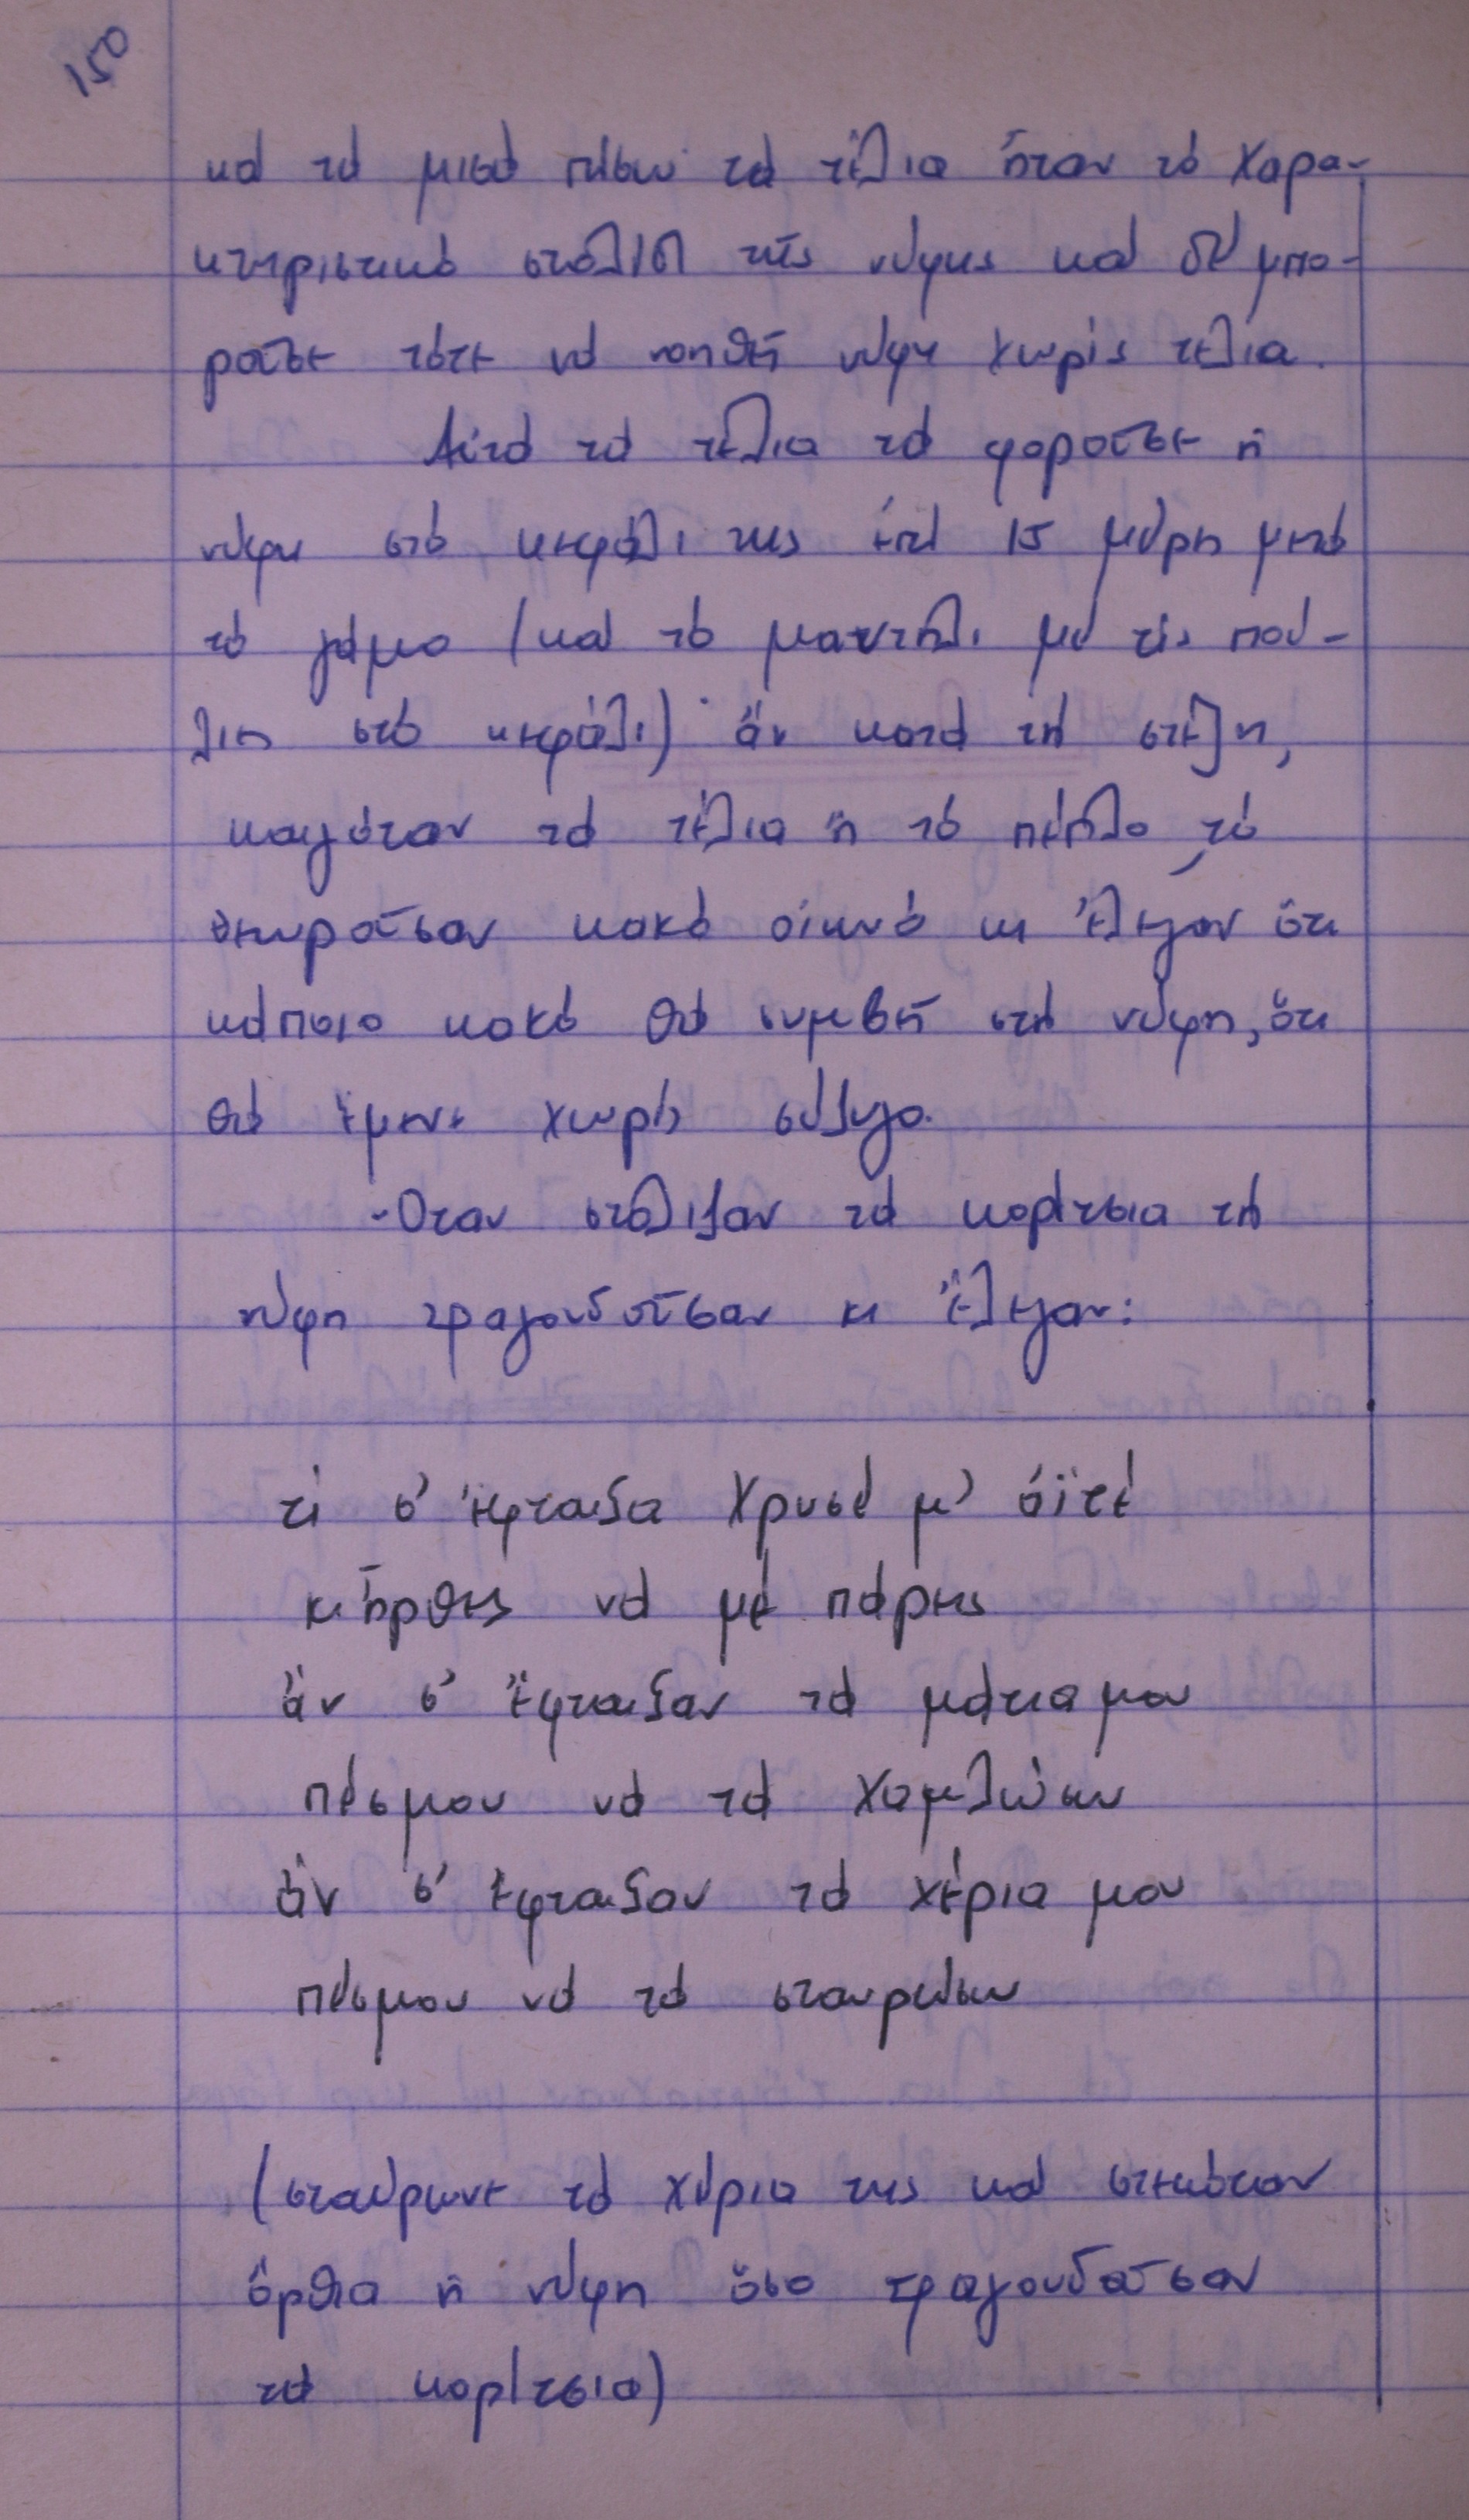 150
καὶ τὰ μισὰ πίσω τὰ τέλια ἦταν τὸ χαρα-
κτηριστικό στολίδι τῆς νύφης καὶ δέ μπο-
ροῦσε τότε νὰ νοηθῆ νύφη χωρίς τέλια.
Αὐτὰ τὰ τέλια τὰ φοροῦσε ἡ
νύφη στό κεφάλι της ἐπί 15 μέρες μετά
τό γάμο (καὶ τὸ μαντήλι μέ τίς πού-
λιες στό κεφάλι) ἄν κατά τή στέψη,
καιγόταν τά τέλια ἤ τό πέπλο, τό
θεωροῦσαν κακό οἰωνό κι ἔλεγαν ὅτι
κάποιο κακό θά συμβῆ στή νύφη, ὅτι
θά ἔμενε χωρίς σύζυγο.
Ὅταν στόλιζαν τά κορίτσια τή
νύφη τραγουδοῦσαν κι ἔλεγαν:
τί σ' ἔφταιξα Χρυσέ μ' ἀϊτέ
κι ἦρθες νά μέ πάρης
ἄν σ' ἔφταιξαν τά μάτια μου
πές μου νά τά χαμηλώσω
ἄν σ' ἔφταιξαν τά χέρια μου
πές μου νά τά σταυρώσω
(σταύρωνε τά χέρια της καί στεκόταν
ὄρθια ἡ νύφη ὅσο τραγουδοῦσαν
τά κορίτσια)